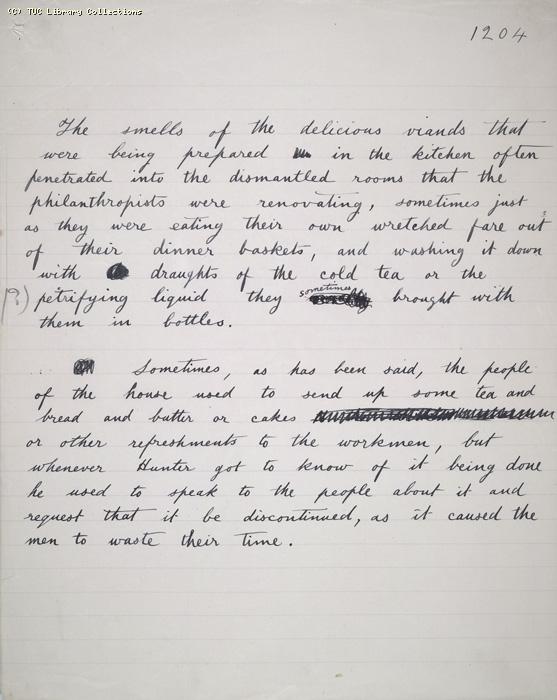 (C) TUC Library Collections
1204
The smells of the delicious viands that
were being prepared in the kitchen often
penetrated into the dismantled rooms that the
philanthropists were renovating, sometimes just
as they were eating their own wretched fare out
of their dinner baskets, and washing it down
with draughts of the cold tea or the
sometimes
(?) petrifying liquid they brought with
them in bottles.
Sometimes, as has been said, the people
of the house used to send up some tea and
bread and butter or cakes
or other refreshments to the workmen, but
whenever Hunter got to know of it being done
he used to speak to the people about it and
request that it be discontinued, as it caused the
men to waste their time.